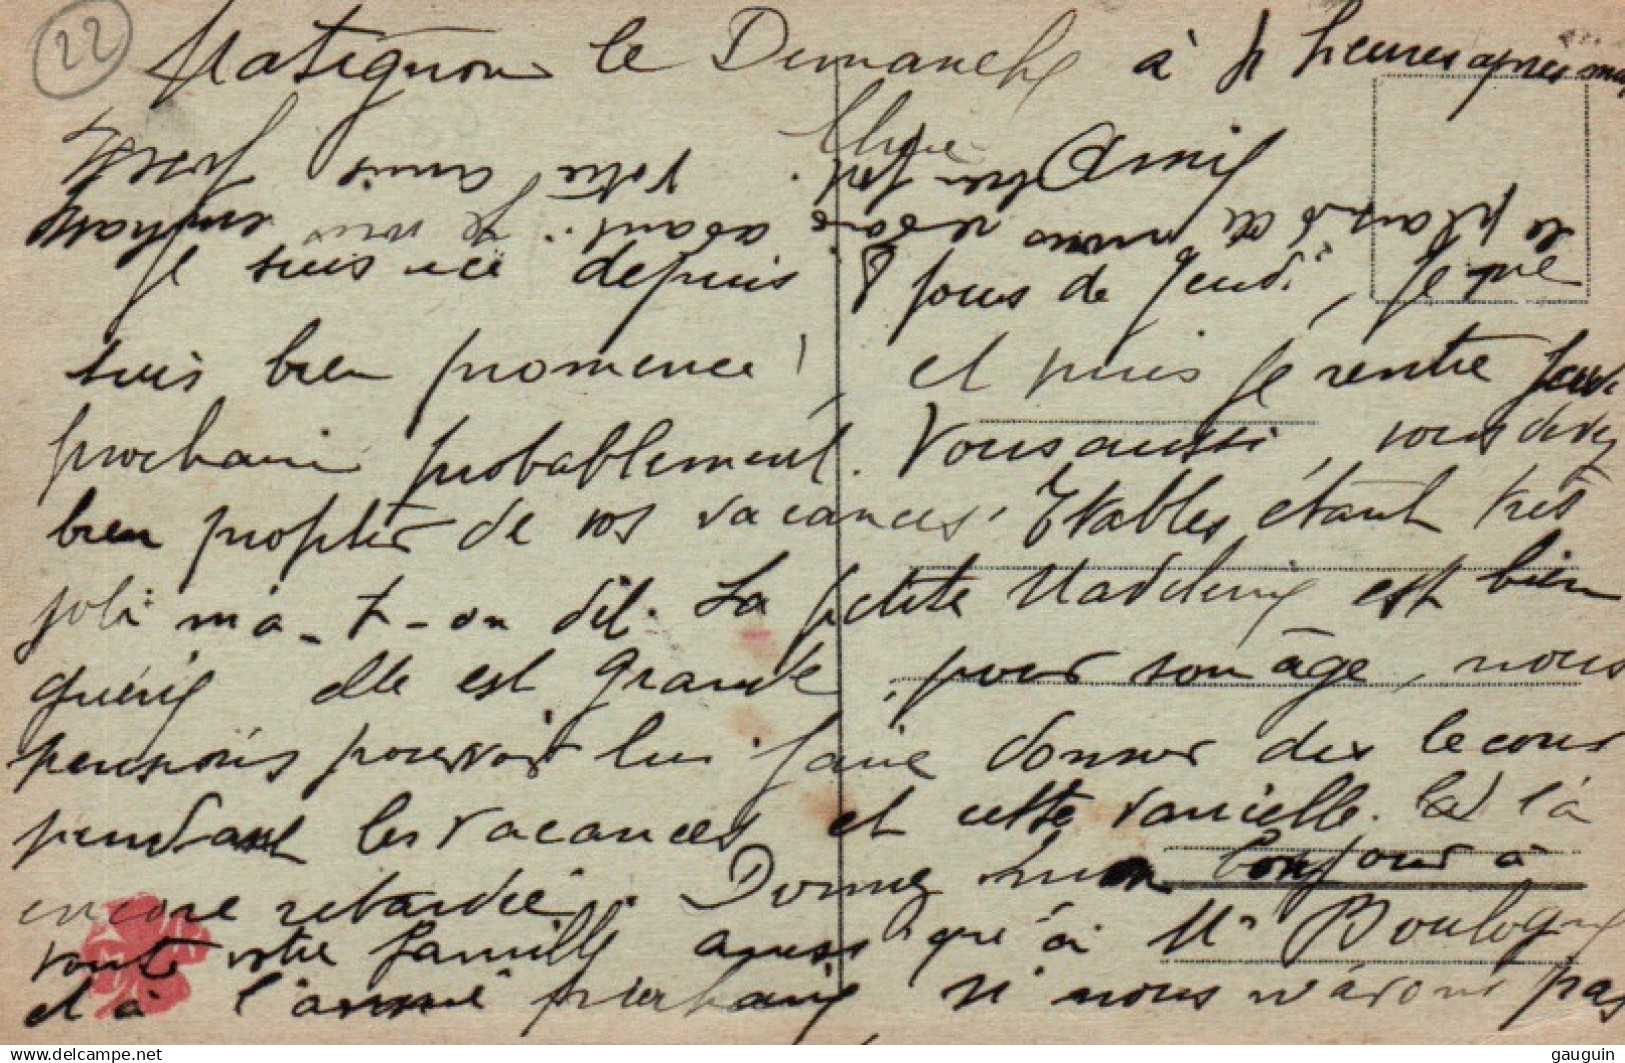 22
Matignon le Dimanche à 4 heures après mid
Chère Amie
Je suis ici depuis 8 jours de Jeudi, Je me
suis bien promenée, et puis je rentre jeudi
prochain probablement. Vous aussi, vous devez
bien profiter de vos vacances. Etables étant très
joli m'a-t-on dit. La petite Madeleine est bien
guérie elle est grande, pour son âge, nous
pensions pouvoir lui faire donner des leçons
pendant les vacances et cette varicelle. l'a
encore retardée. Donnez mon bonjour à
toute votre famille ainsi que à Mr Boulogne
et à l'année prochaine si nous n'avons pas
le plaisir de nous revoir avant. Je vous embrasse
bien fort. Votre amie
delcampe.net
gauguin